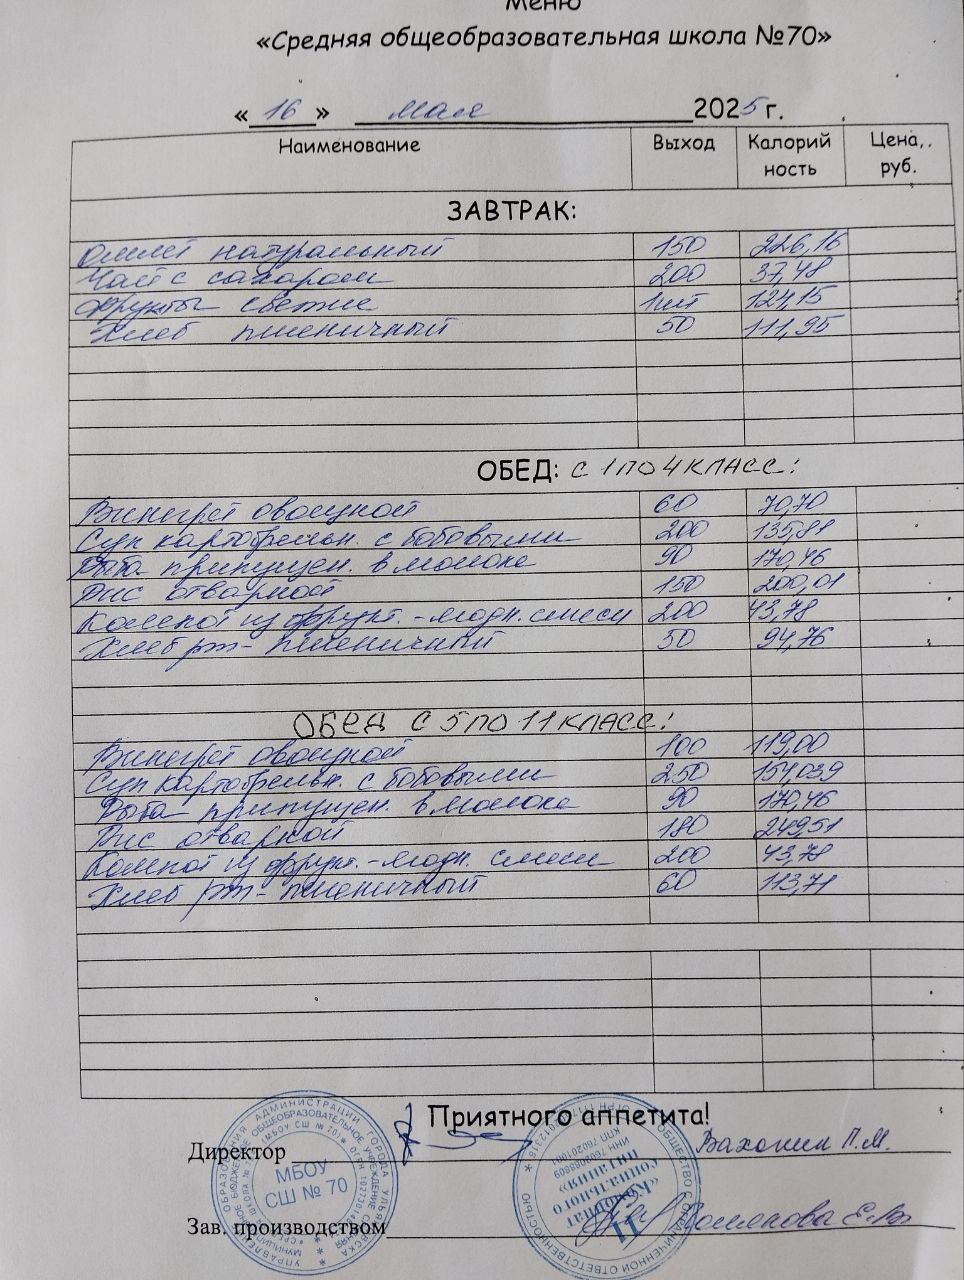 Меню
«Средняя общеобразовательная школа №70»
« 16 » мая 2025 г.
Наименование Выход Калорий ность Цена, руб.
ЗАВТРАК:
Омлет натуральный 150 226,16
Чай с сахаром 200 37,48
Фрукты свежие 1шт 124,15
Хлеб пшеничный 50 111,95
ОБЕД: С 1 ПО 4 КЛАСС:
Винегрет овощной 60 70,70
Суп картофельн. с бобовыми 200 135,81
Рыба припущен. в молоке 90 170,46
Рис отварной 150 200,01
Компот из фрукт.-ягодн. смеси 200 43,78
Хлеб рж- пшеничный 50 94,76
ОБЕД С 5 ПО 11 КЛАСС:
Винегрет овощной 100 119,00
Суп картофельн. с бобовыми 250 154039
Рыба припущен. в молоке 90 170,46
Рис отварной 180 249,51
Компот из фрукт.-ягодн. смеси 200 43,78
Хлеб рж- пшеничный 60 113,71
Приятного аппетита!
Директор П.М.
МБОУ
СШ № 70
«Комбинат
социального
питания»
Зав. производством